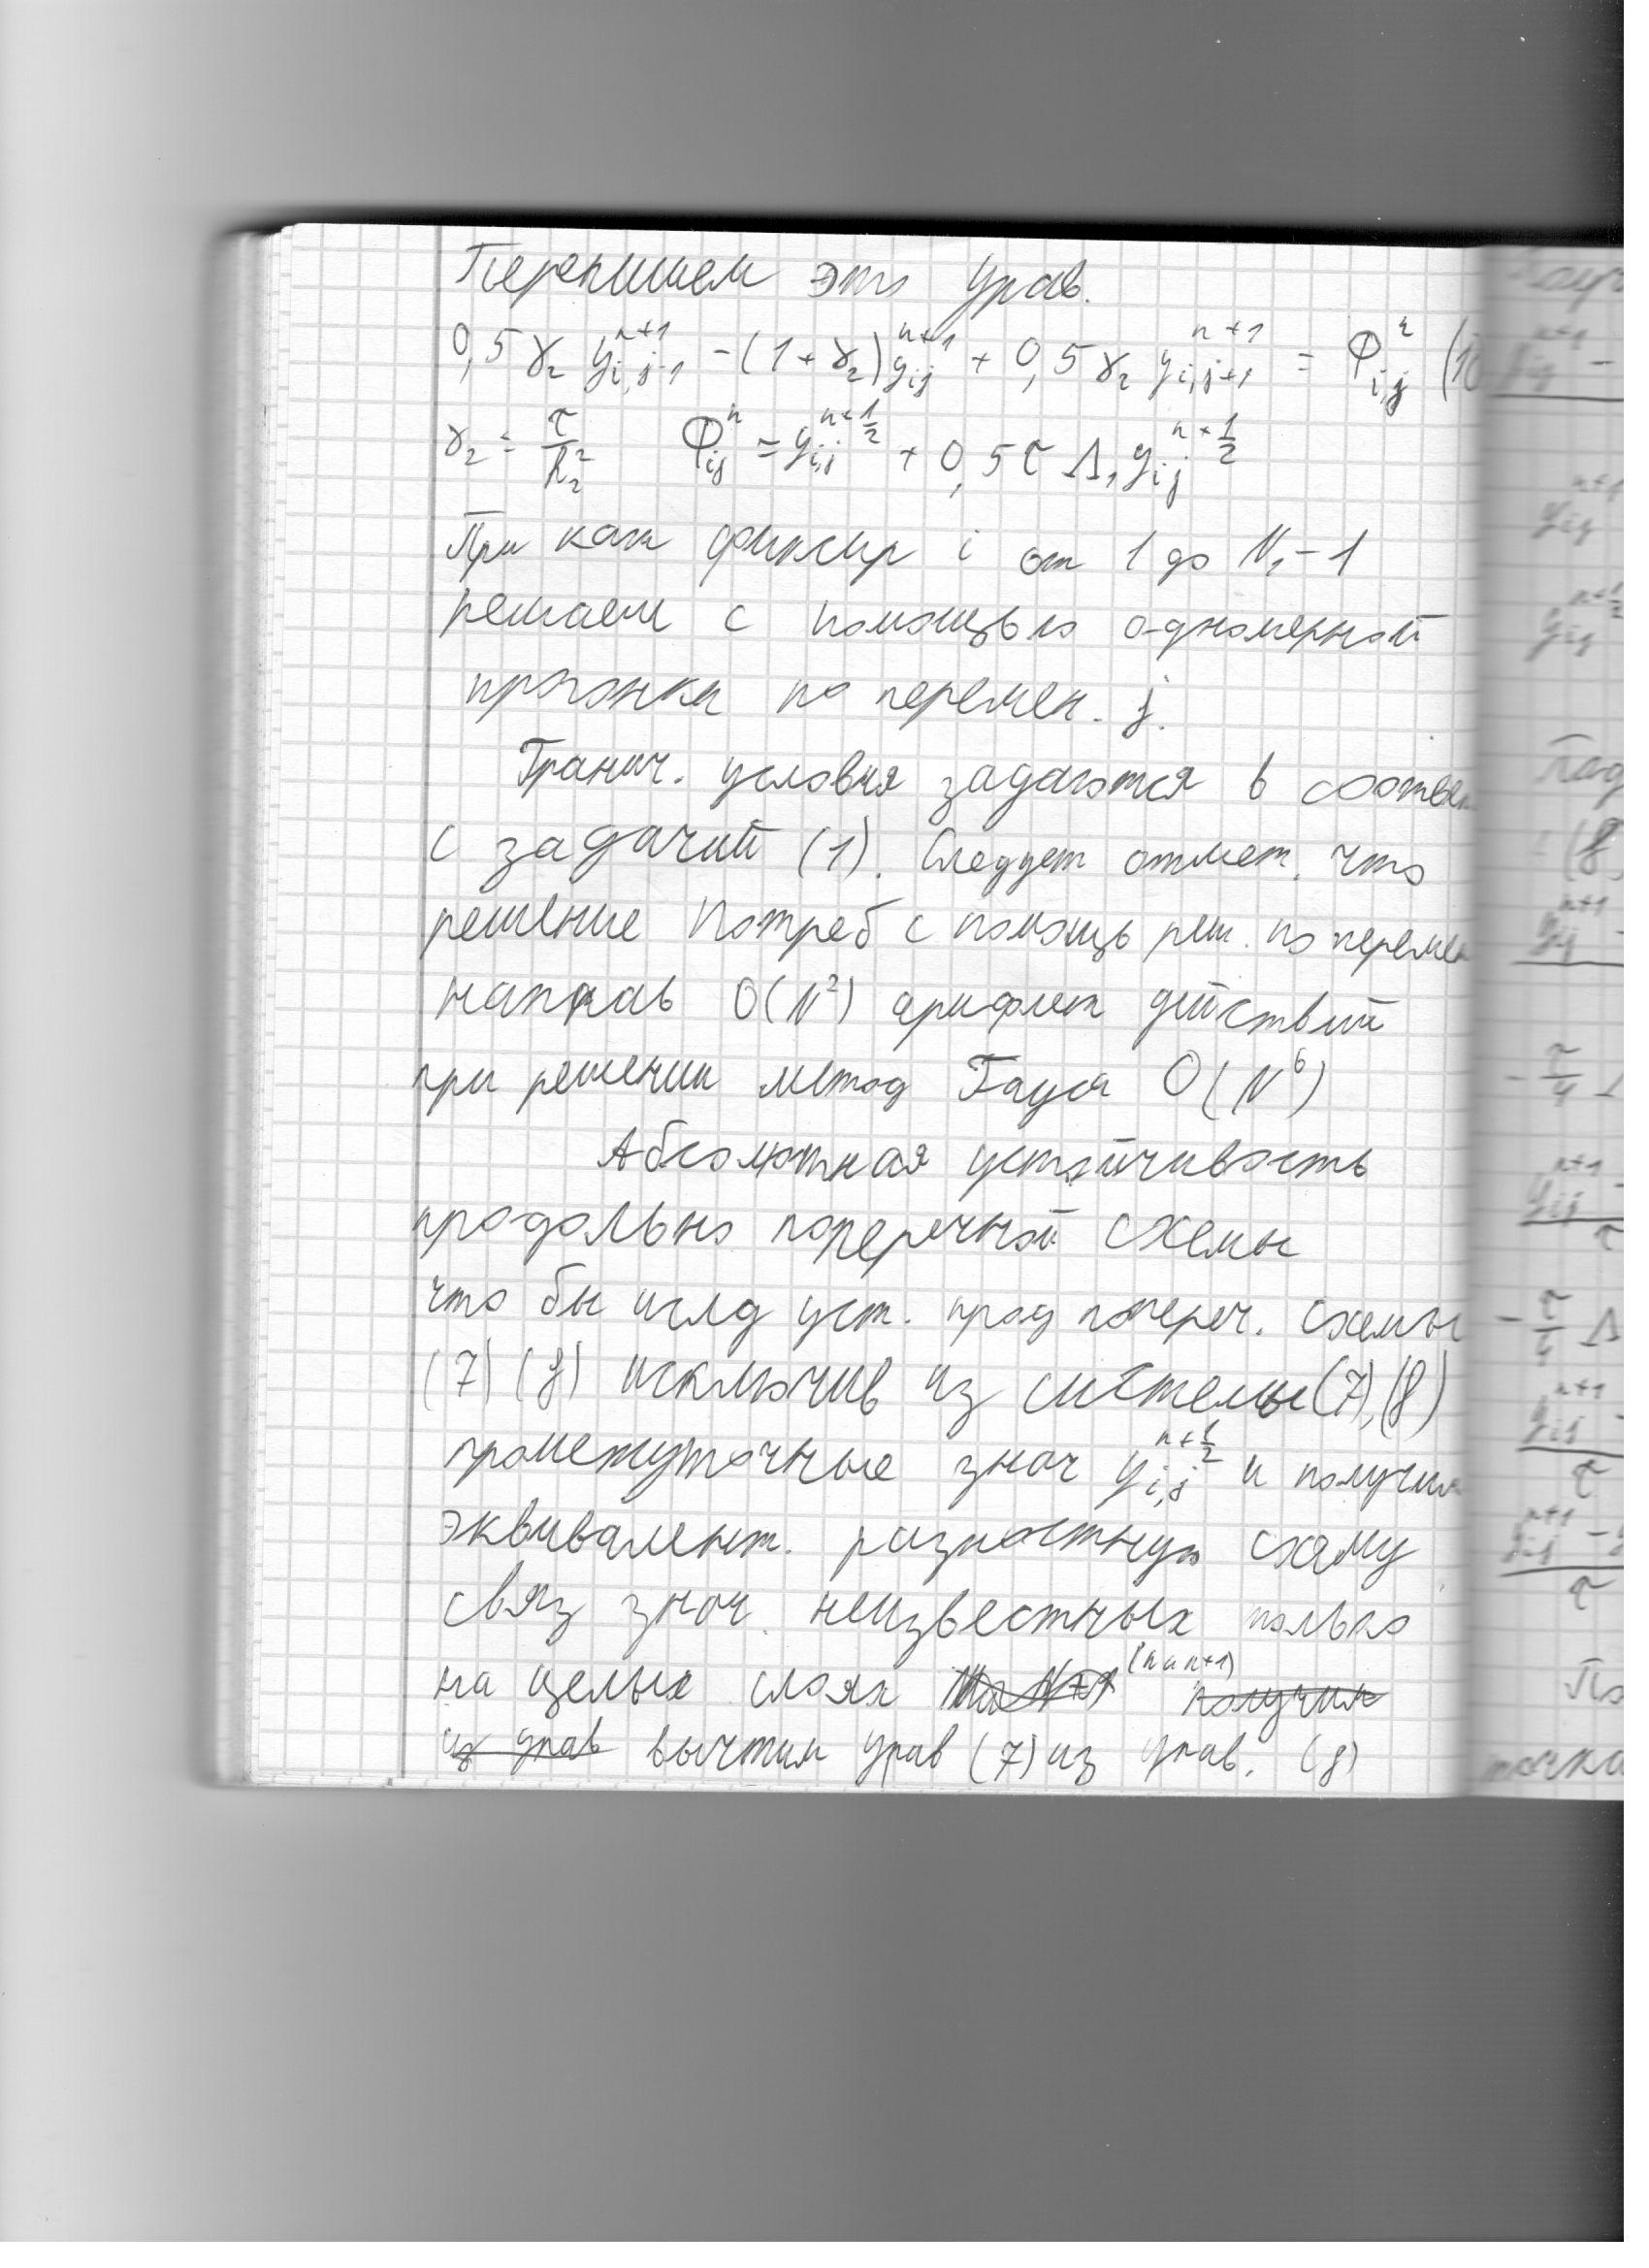 Перепишем это урав.
0,5 γ₂ y_{i,j-1}^{n+1} - (1+γ₂) y_{ij}^{n+1} + 0,5 γ₂ y_{i,j+1}^{n+1} = Φ_{i,j}^{n} (10
γ₂ = τ/h₂² Φ_{ij}^{n} = y_{i,j}^{n+1/2} + 0,5 τ Λ₁ y_{ij}^{n+1/2}
При каж фиксир i от 1 до N₁-1
решаем с помощью одномерной
прогонки по перемен. j.
Гранич. условия задаются в соответ
с задачий (1). Следует отмет. что
решение потреб с помощь реш. по перемен
направ O(N²) арифмет действий
при решении метод Гауса O(N⁶)
Абсолютная устойчивость
продольно поперечной схемы
что бы иглд уст. прод попереч. схемы
(7) (8) исключив из системы (7), (8)
промежуточные знач y_{i,j}^{n+1/2} и получим
эквивалент. разностную схему
связ знач. неизвестных только
на целых слоях (n и n+1) получим
из урав вычтим урав (7) из урав. (8)